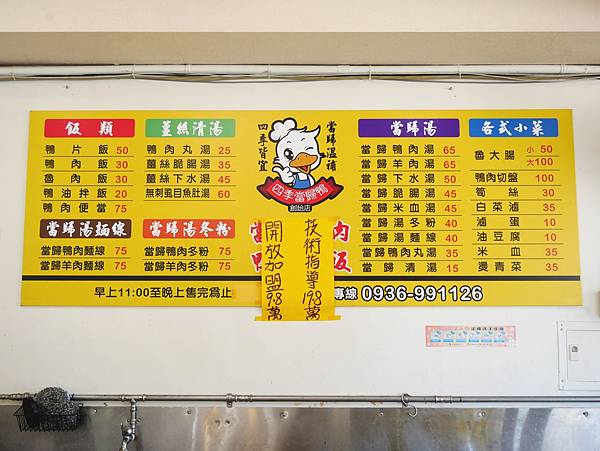 飯類
鴨片飯 50
鴨肉飯 30
魯肉飯 30
鴨油拌飯 20
鴨肉便當 75
薑絲清湯
鴨肉丸湯 25
薑絲脆腸湯 35
薑絲下水湯 45
無刺虱目魚肚湯 60
當歸湯麵線
當歸鴨肉麵線 75
當歸羊肉麵線 75
當歸湯冬粉
當歸鴨肉冬粉 75
當歸羊肉冬粉 75
早上11:00至晚上售完為止
當歸溫補
四季皆宜
四季當歸鴨
創始店
技術指導198萬
開放加盟98萬
當
肉
鴨
飯
專線 0936-991126
當歸湯
當歸鴨肉湯 65
當歸羊肉湯 65
當歸下水湯 50
當歸脆腸湯 45
當歸米血湯 45
當歸湯冬粉 40
當歸湯麵線 40
當歸鴨肉丸湯 35
當歸清湯 15
各式小菜
魯大腸 小50 大100
鴨肉切盤 100
筍絲 30
白菜滷 35
滷蛋 10
油豆腐 10
米血 35
燙青菜 35